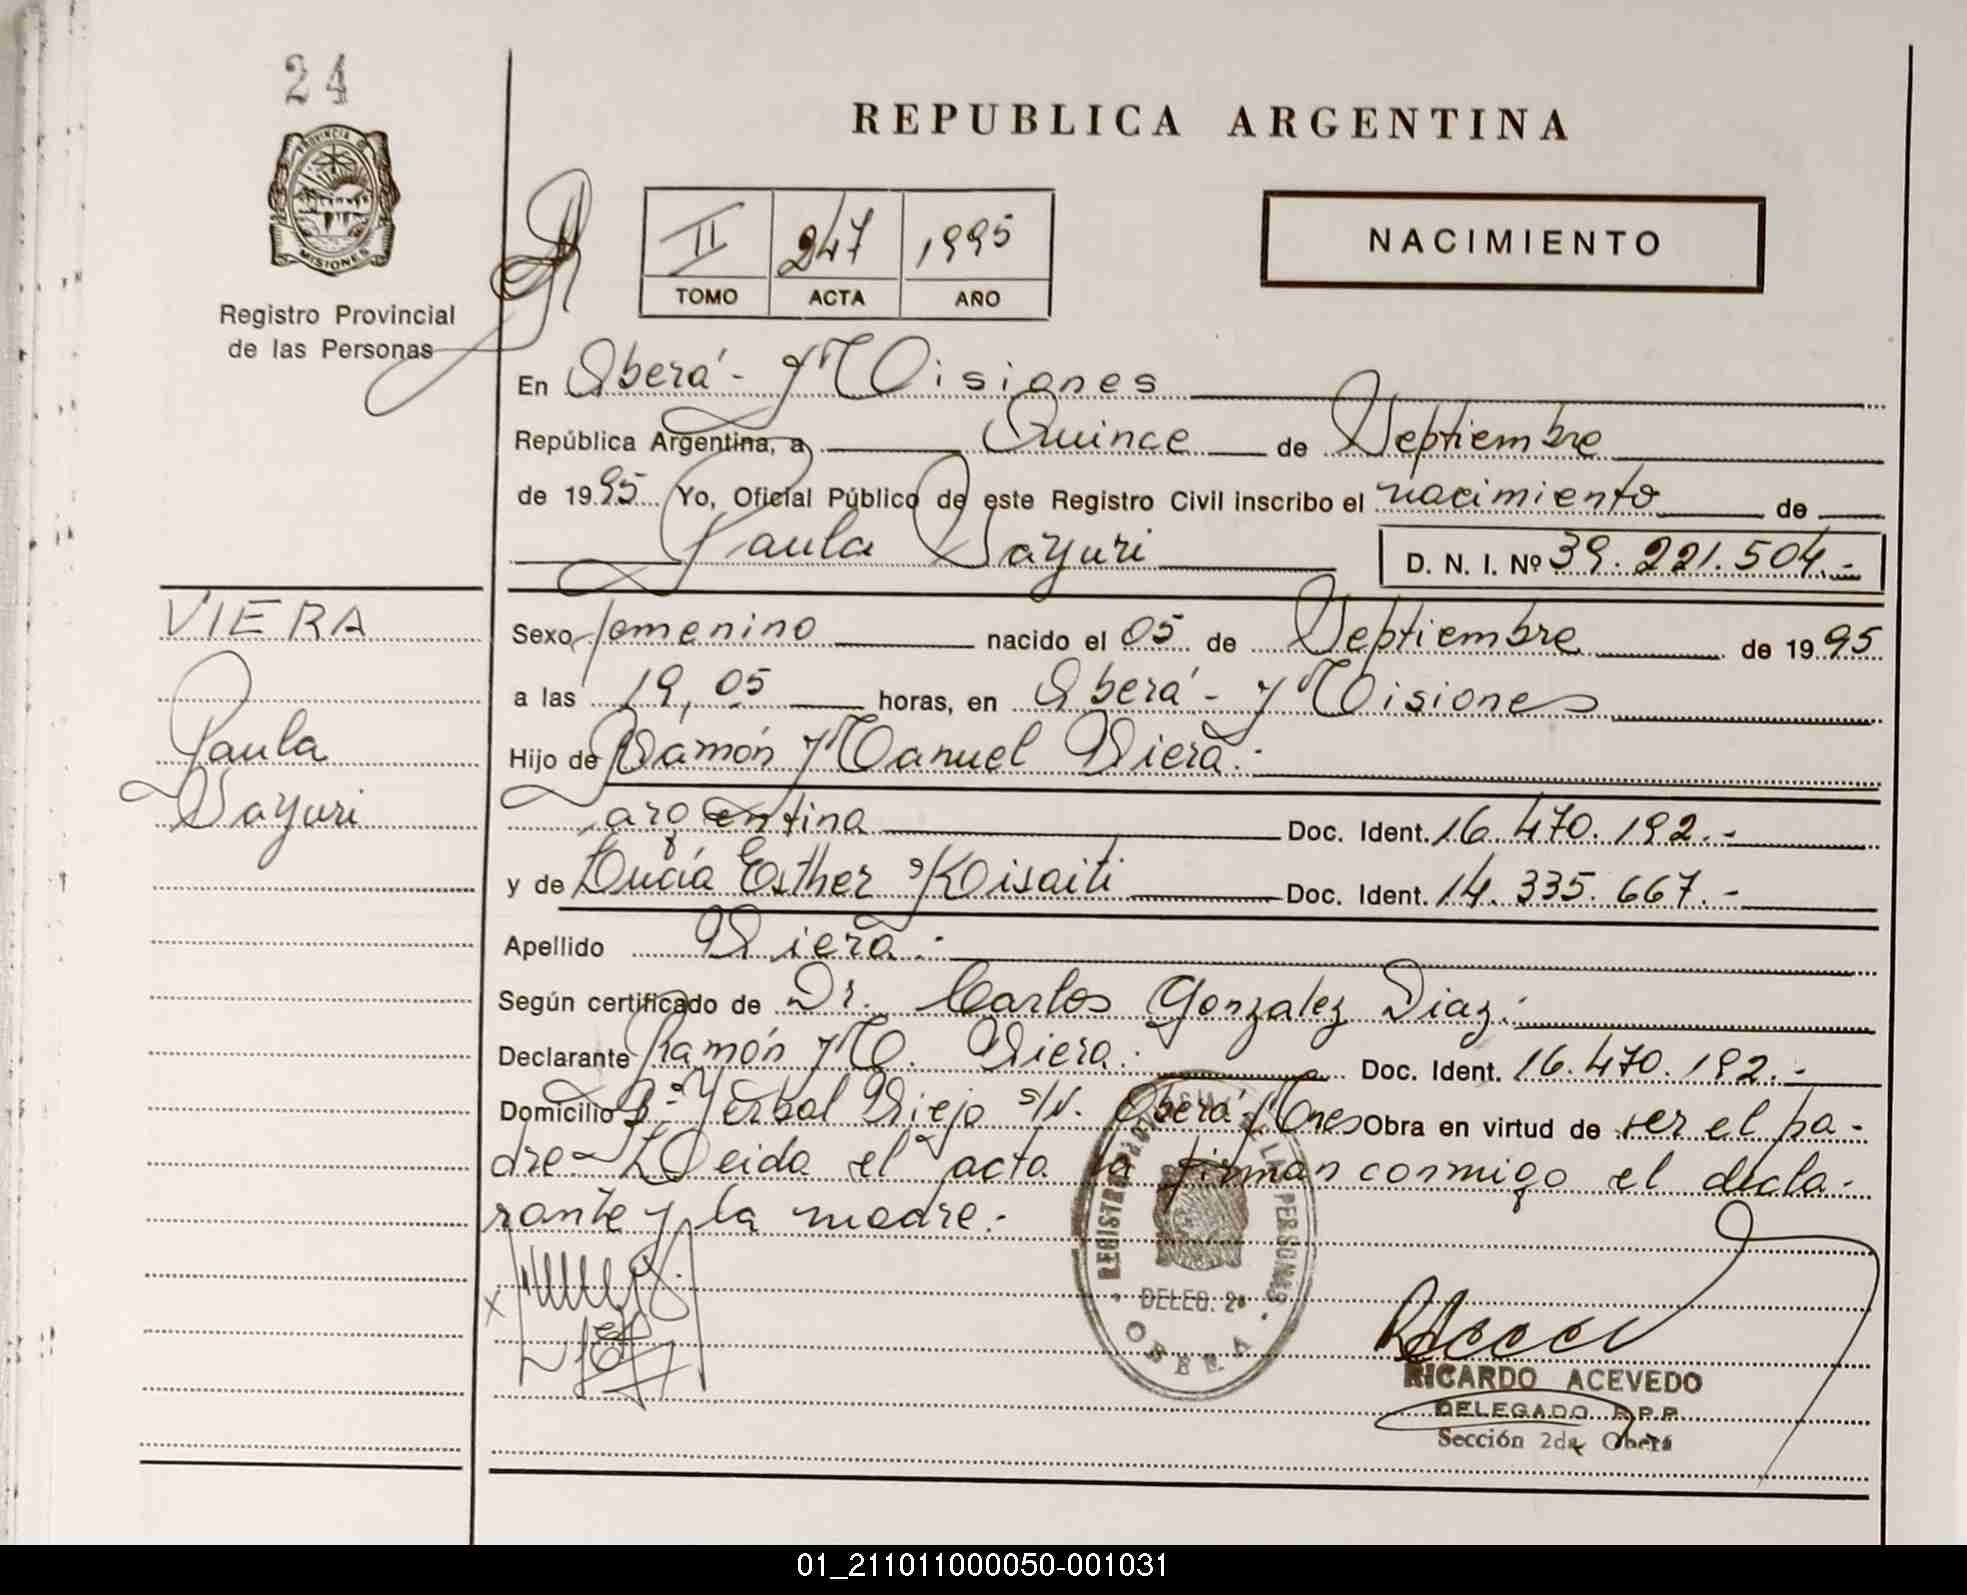 24
PROVINCIA DE
MISIONES
Registro Provincial
de las Personas
REPUBLICA ARGENTINA
II 247 1995
TOMO ACTA AÑO
NACIMIENTO
En Oberá - Misiones
República Argentina, a Quince de Septiembre
de 1995 Yo, Oficial Público de este Registro Civil inscribo el nacimiento de
Paula Sayuri D. N. I. Nº 39.221.504.-
VIERA
Paula
Sayuri
Sexo femenino nacido el 05 de Septiembre de 1995
a las 19,05 horas, en Oberá - Misiones
Hijo de Ramón Manuel Viera.-
argentina Doc. Ident. 16.470.192.-
y de Lucía Esther Kisaiti Doc. Ident. 14.335.667.-
Apellido Viera.-
Según certificado de Dr. Carlos Gonzalez Diaz.-
Declarante Ramón M. Viera.- Doc. Ident. 16.470.192.-
Domicilio Bº Yerbal Viejo s/N. Oberá Mnes Obra en virtud de ser el pa-
dre- Leida el acta la firman conmigo el decla-
rante y la madre.-
DELEG. 2ª
OBERA
RICARDO ACEVEDO
DELEGADO R.P.P.
Sección 2da Oberá
01_211011000050-001031